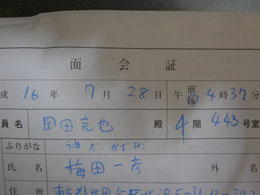 面会証
成 16年 7月 28日 午 前 後 4時37分
員名 岡田克也 殿 4階 443号室
ふりがな うめだ かずひこ
氏名 梅田一彦
住所